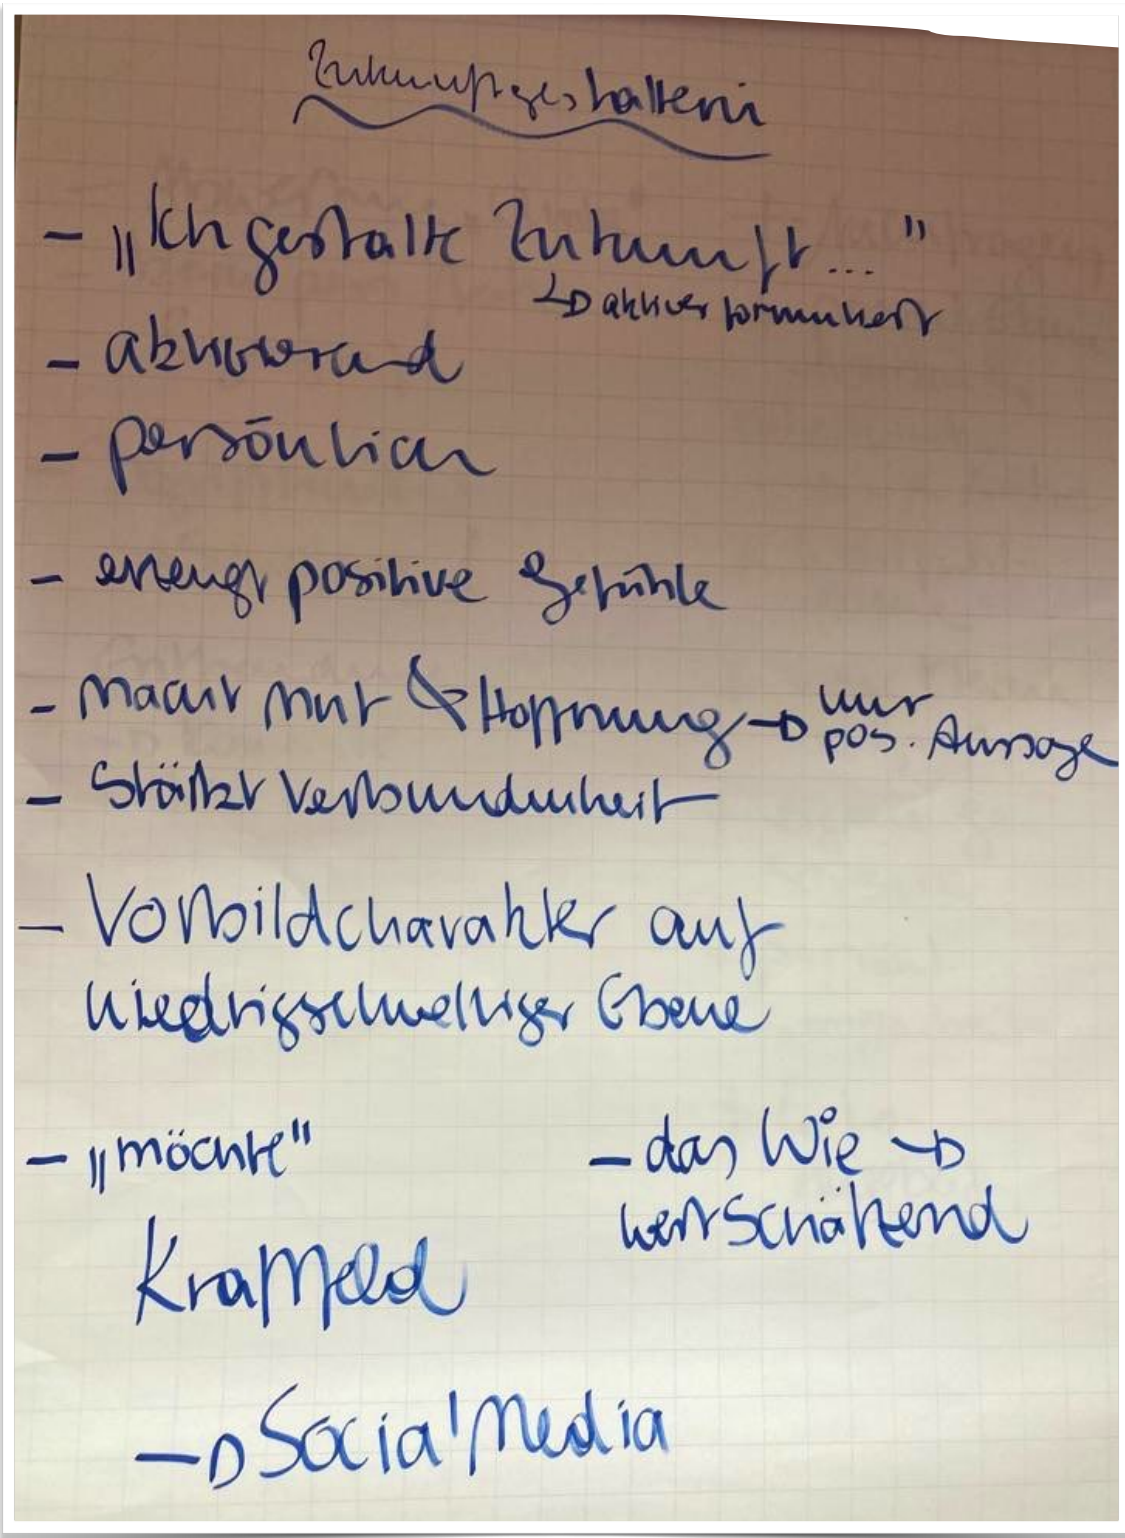 Zukunftgestalterin
- „Ich gestalte Zukunft..."
↳ aktiver formuliert
- aktivierend
- persönlich
- erzeugt positive Gefühle
- macht Mut & Hoffnung → nur
pos. Aussage
- Stärkt Verbundenheit
- Vorbildcharakter auf
niedrigschwelliger Ebene
- „möchte"
Kraftfeld
- das Wie →
wertschätzend
→ Social Media